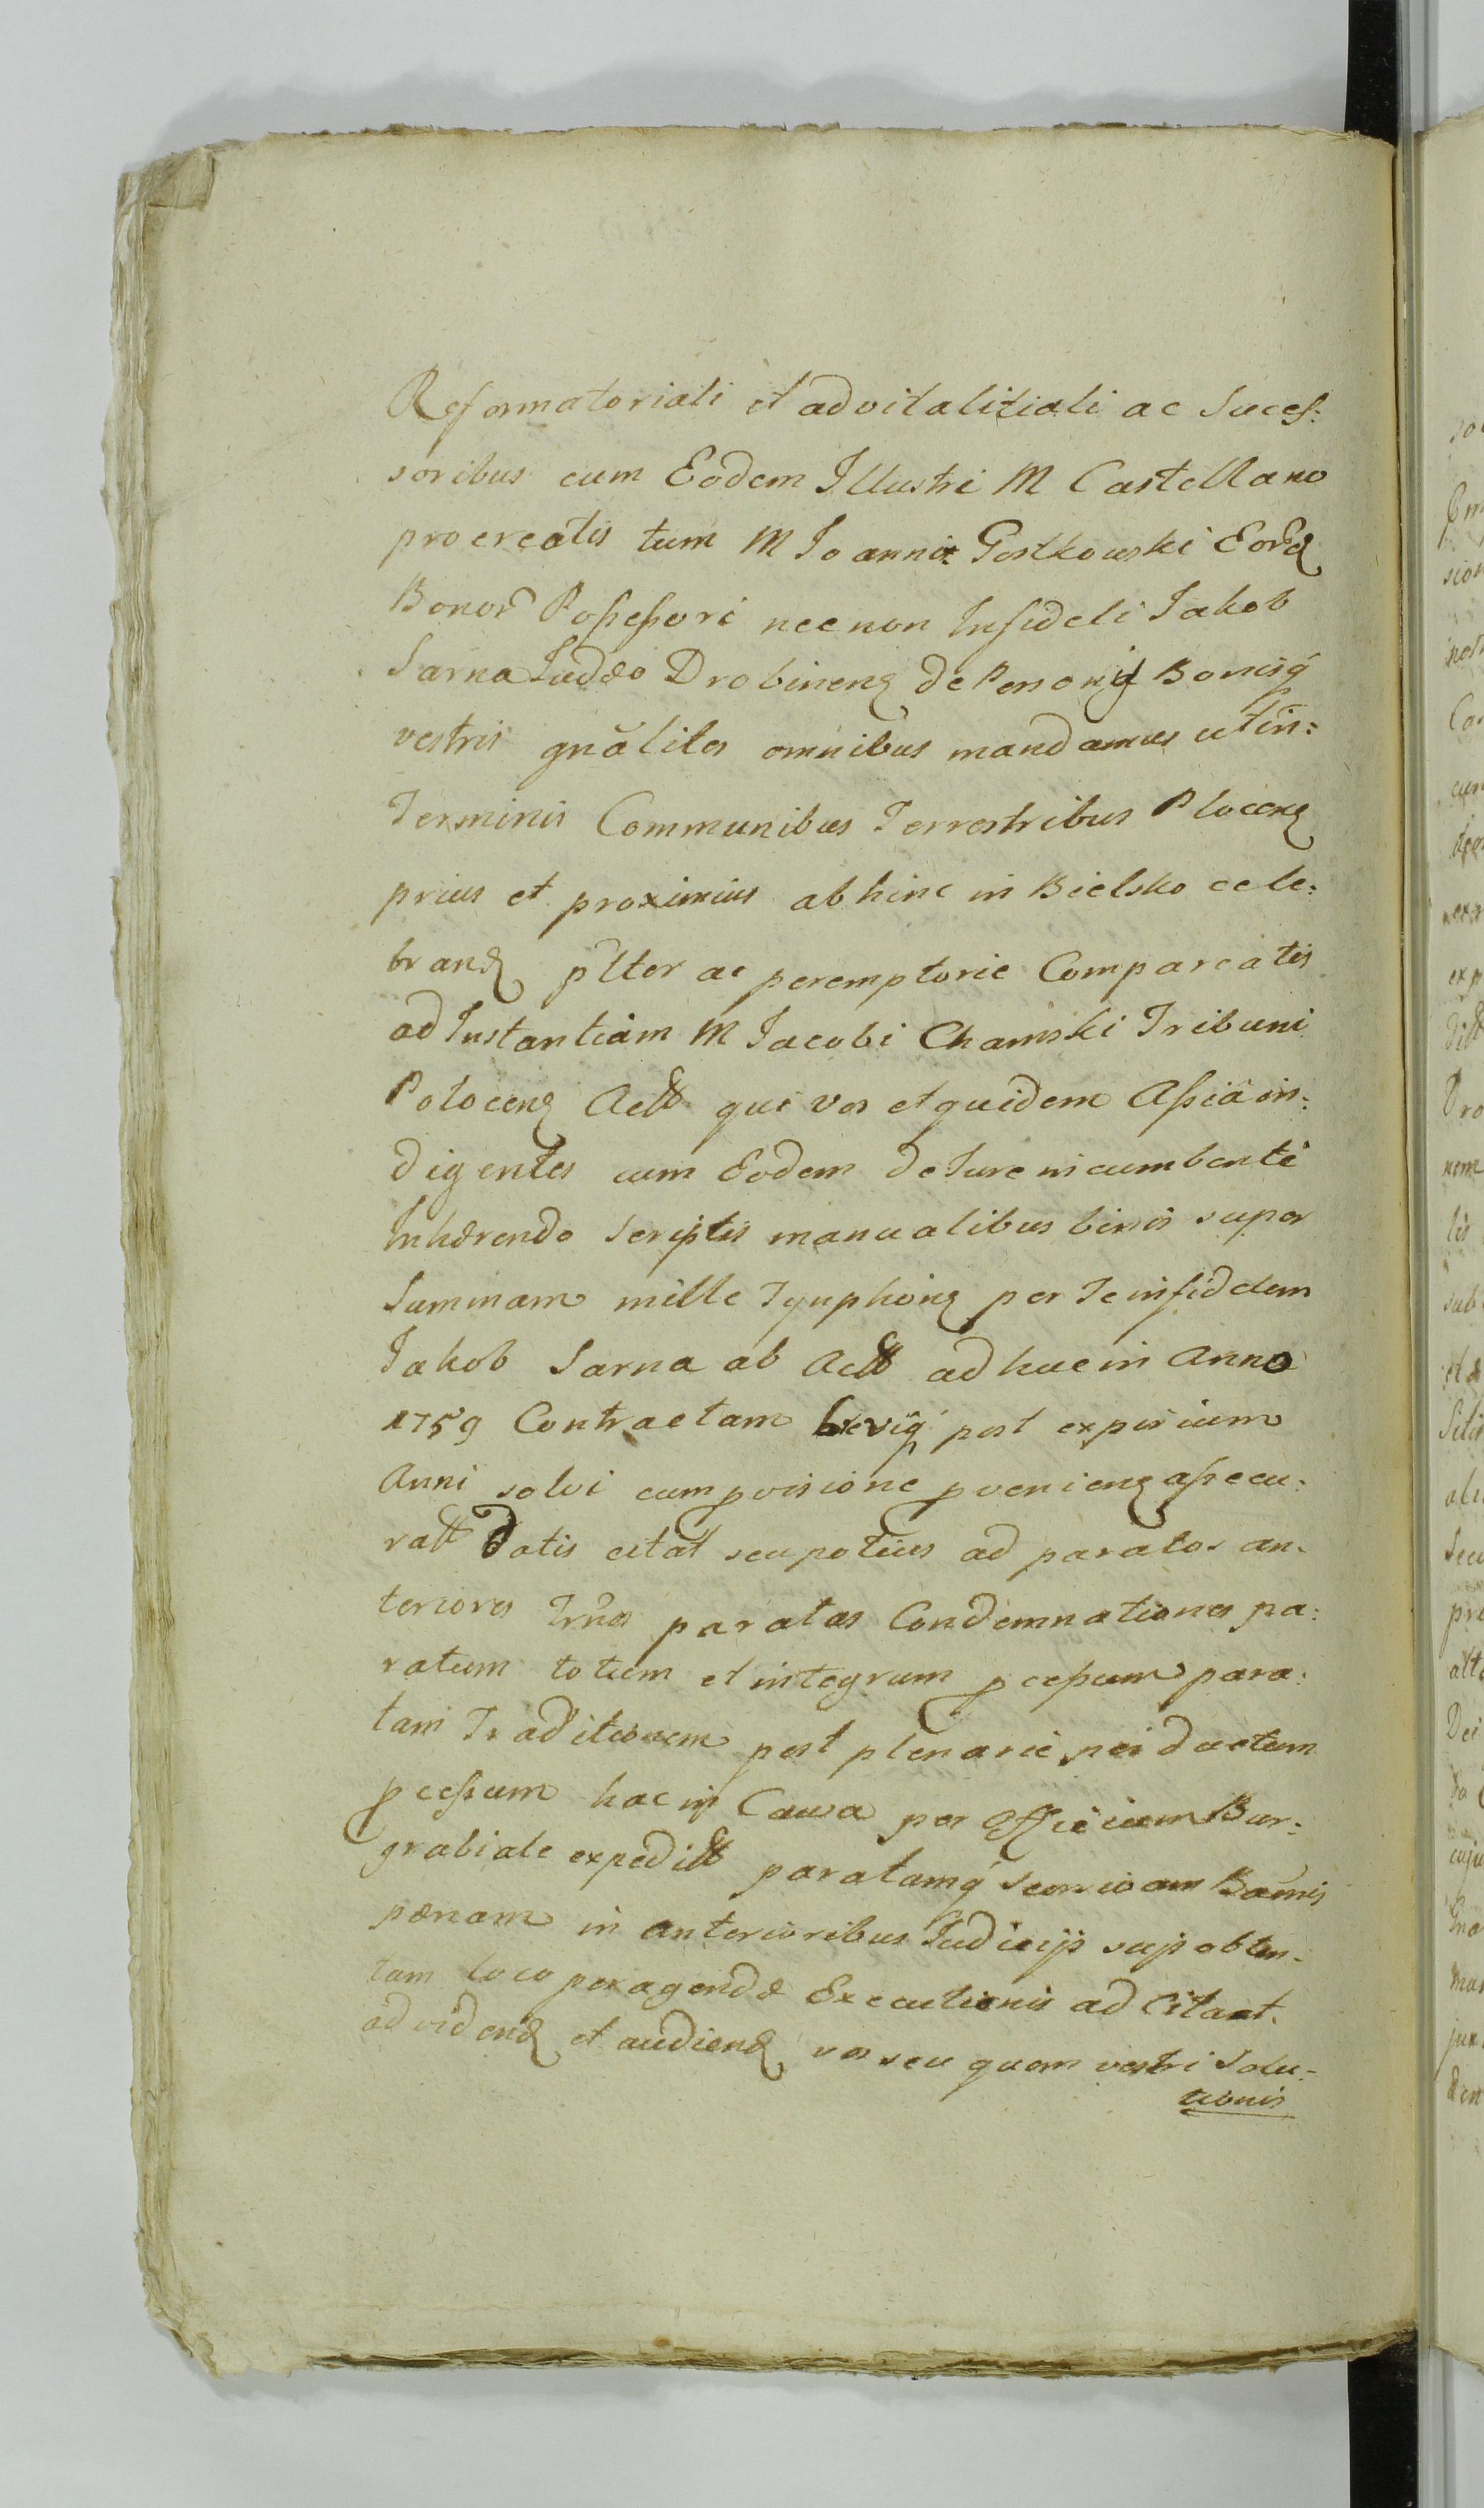 Reformatoriali et advitalitiali ac Succes:
soribus cum Eodem Illustri M Castellano
procreatis tum M Joannix Gostkowski Eord
Bonor Possessori necnon Infideli Jakob
Sarna Judæo Drobinens de Personis Bonisq
vestris gnaliter omnibus mandamus ut in:
Terminis Communibus Terrestribus Plocens
prius et proximius abhinc in Bielsko cele:
brand pltter ac peremptorie Compareatis
ad Instantiam M Jacobi Chamski Tribuni
Polocens Actt qui vos et quidem Assia in:
digentes cum Eodem de Jure incumbenti
Inhærendo Scriptis manualibus binis super
Summam mille Tynphons per Te infidelem
Jakob Sarna ab Actt adhuc in Anno
1759 Contractam bevisq post expirium
Anni solvi cum pvisione pveniens assecu:
ratt datis citat seu potius ad paratos an:
teriores Trnos paratas Condemnationes pa:
ratum totum et integrum pcessum para:
tam Traditionem post plenarie perductum
pcessum hac in Causa per Officium Bur:
grabiale expeditt paratamq Bannis
pænam in anterioribus Judiciis sup obten:
tam loco peragendæ Executionis ad Citant.
ad vidend et audiend vos seu quem vestri Solu:
tionis